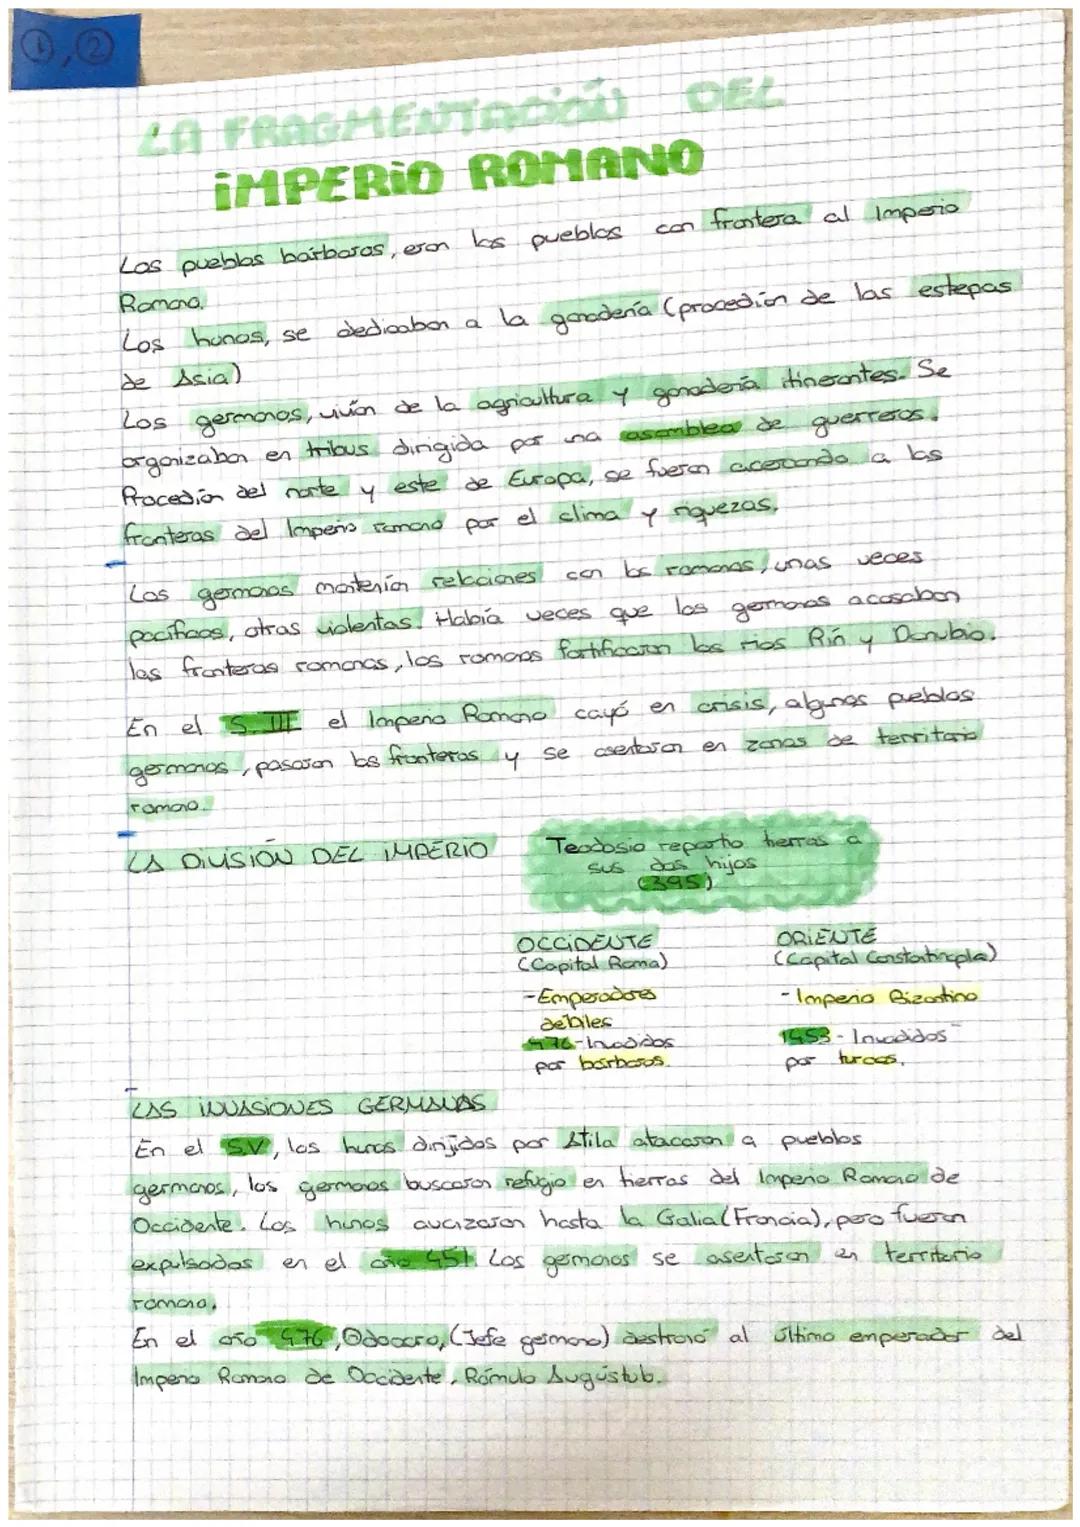 ①,②
LA FRAGMENTACIÓN DEL
IMPERIO ROMANO
Los pueblos bárbaros, eran los pueblos con frontera al Imperio
Romano.
Los hunos, se dedicaban a la ganadería (procedían de las estepas
de Asia)
Los germanos, vivían de la agricultura y ganadería itinerantes. Se
organizaban en tribus dirigida por una asamblea de guerreros.
Procedían del norte y este de Europa, se fueron acercando a las
fronteras del Imperio romano por el clima y riquezas.
Los germanos mantenían relaciones con los romanos, unas veces
pacíficas, otras violentas. Había veces que los germanos acosaban
las fronteras romanas, los romanos fortificaron los ríos Rin y Danubio.
En el S. III el Imperio Romano cayó en crisis, algunos pueblos
germanos, pasaron las fronteras y se asentaron en zonas de territorio
romano.
LA DIVISIÓN DEL IMPERIO
Teodosio repartio tierras a
sus dos hijos
(395)
OCCIDENTE
(Capital Roma)
-Emperadores
debiles
476-Invadidos
por bárbaros.
ORIENTE
(Capital Constantinopla)
-Imperio Bizantino
1453-Invadidos
por turcos.
LAS INVASIONES GERMANAS
En el S.V, los hunos dirijidos por Atila atacaron a pueblos
germanos, los germanos buscaron refugio en tierras del Imperio Romano de
Occidente. Los hunos avazaron hasta la Galia (Francia), pero fueron
expulsados en el año 451. Los germanos se asentaron en territorio
romano.
En el año 476, Odoacro, (Jefe germano) destronó al último emperador del
Imperio Romano de Occidente, Rómulo Augústulo.